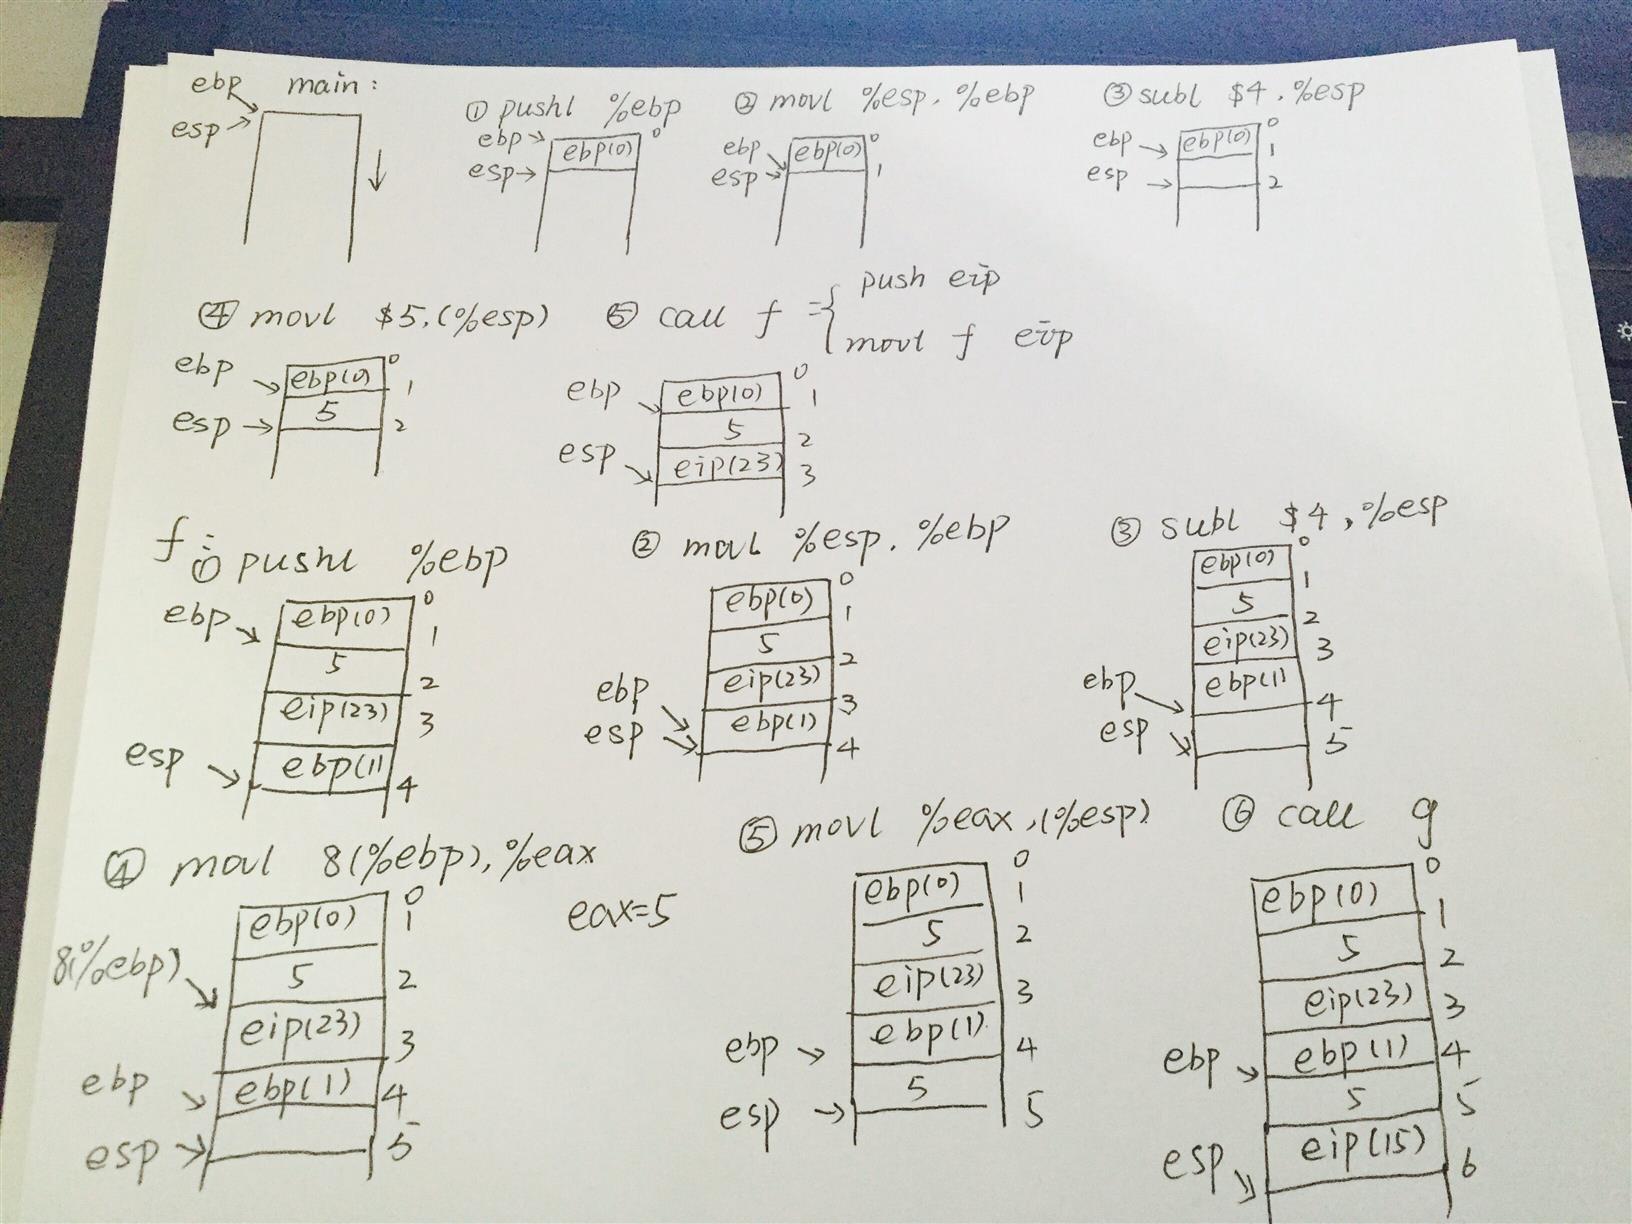 ebp main:
esp
① pushl %ebp
ebp
esp
ebp(0)
0
② movl %esp, %ebp
ebp
esp
ebp(0)
0
1
③ subl $4, %esp
ebp
esp
ebp(0)
0
1
2
④ movl $5, (%esp)
ebp
esp
ebp(0)
5
0
1
2
⑤ call f = { push eip
movl f eip
ebp
esp
ebp(0)
5
eip(23)
0
1
2
3
f:
① pushl %ebp
ebp
esp
ebp(0)
5
eip(23)
ebp(1)
0
1
2
3
4
② movl %esp, %ebp
ebp
esp
ebp(0)
5
eip(23)
ebp(1)
0
1
2
3
4
③ subl $4, %esp
ebp
esp
ebp(0)
5
eip(23)
ebp(1)
0
1
2
3
4
5
④ movl 8(%ebp), %eax
eax=5
8(%ebp)
ebp
esp
ebp(0)
5
eip(23)
ebp(1)
0
1
2
3
4
5
⑤ movl %eax, (%esp)
ebp
esp
ebp(0)
5
eip(23)
ebp(1)
5
0
1
2
3
4
5
⑥ call g
ebp
esp
ebp(0)
5
eip(23)
ebp(1)
5
eip(15)
0
1
2
3
4
5
6